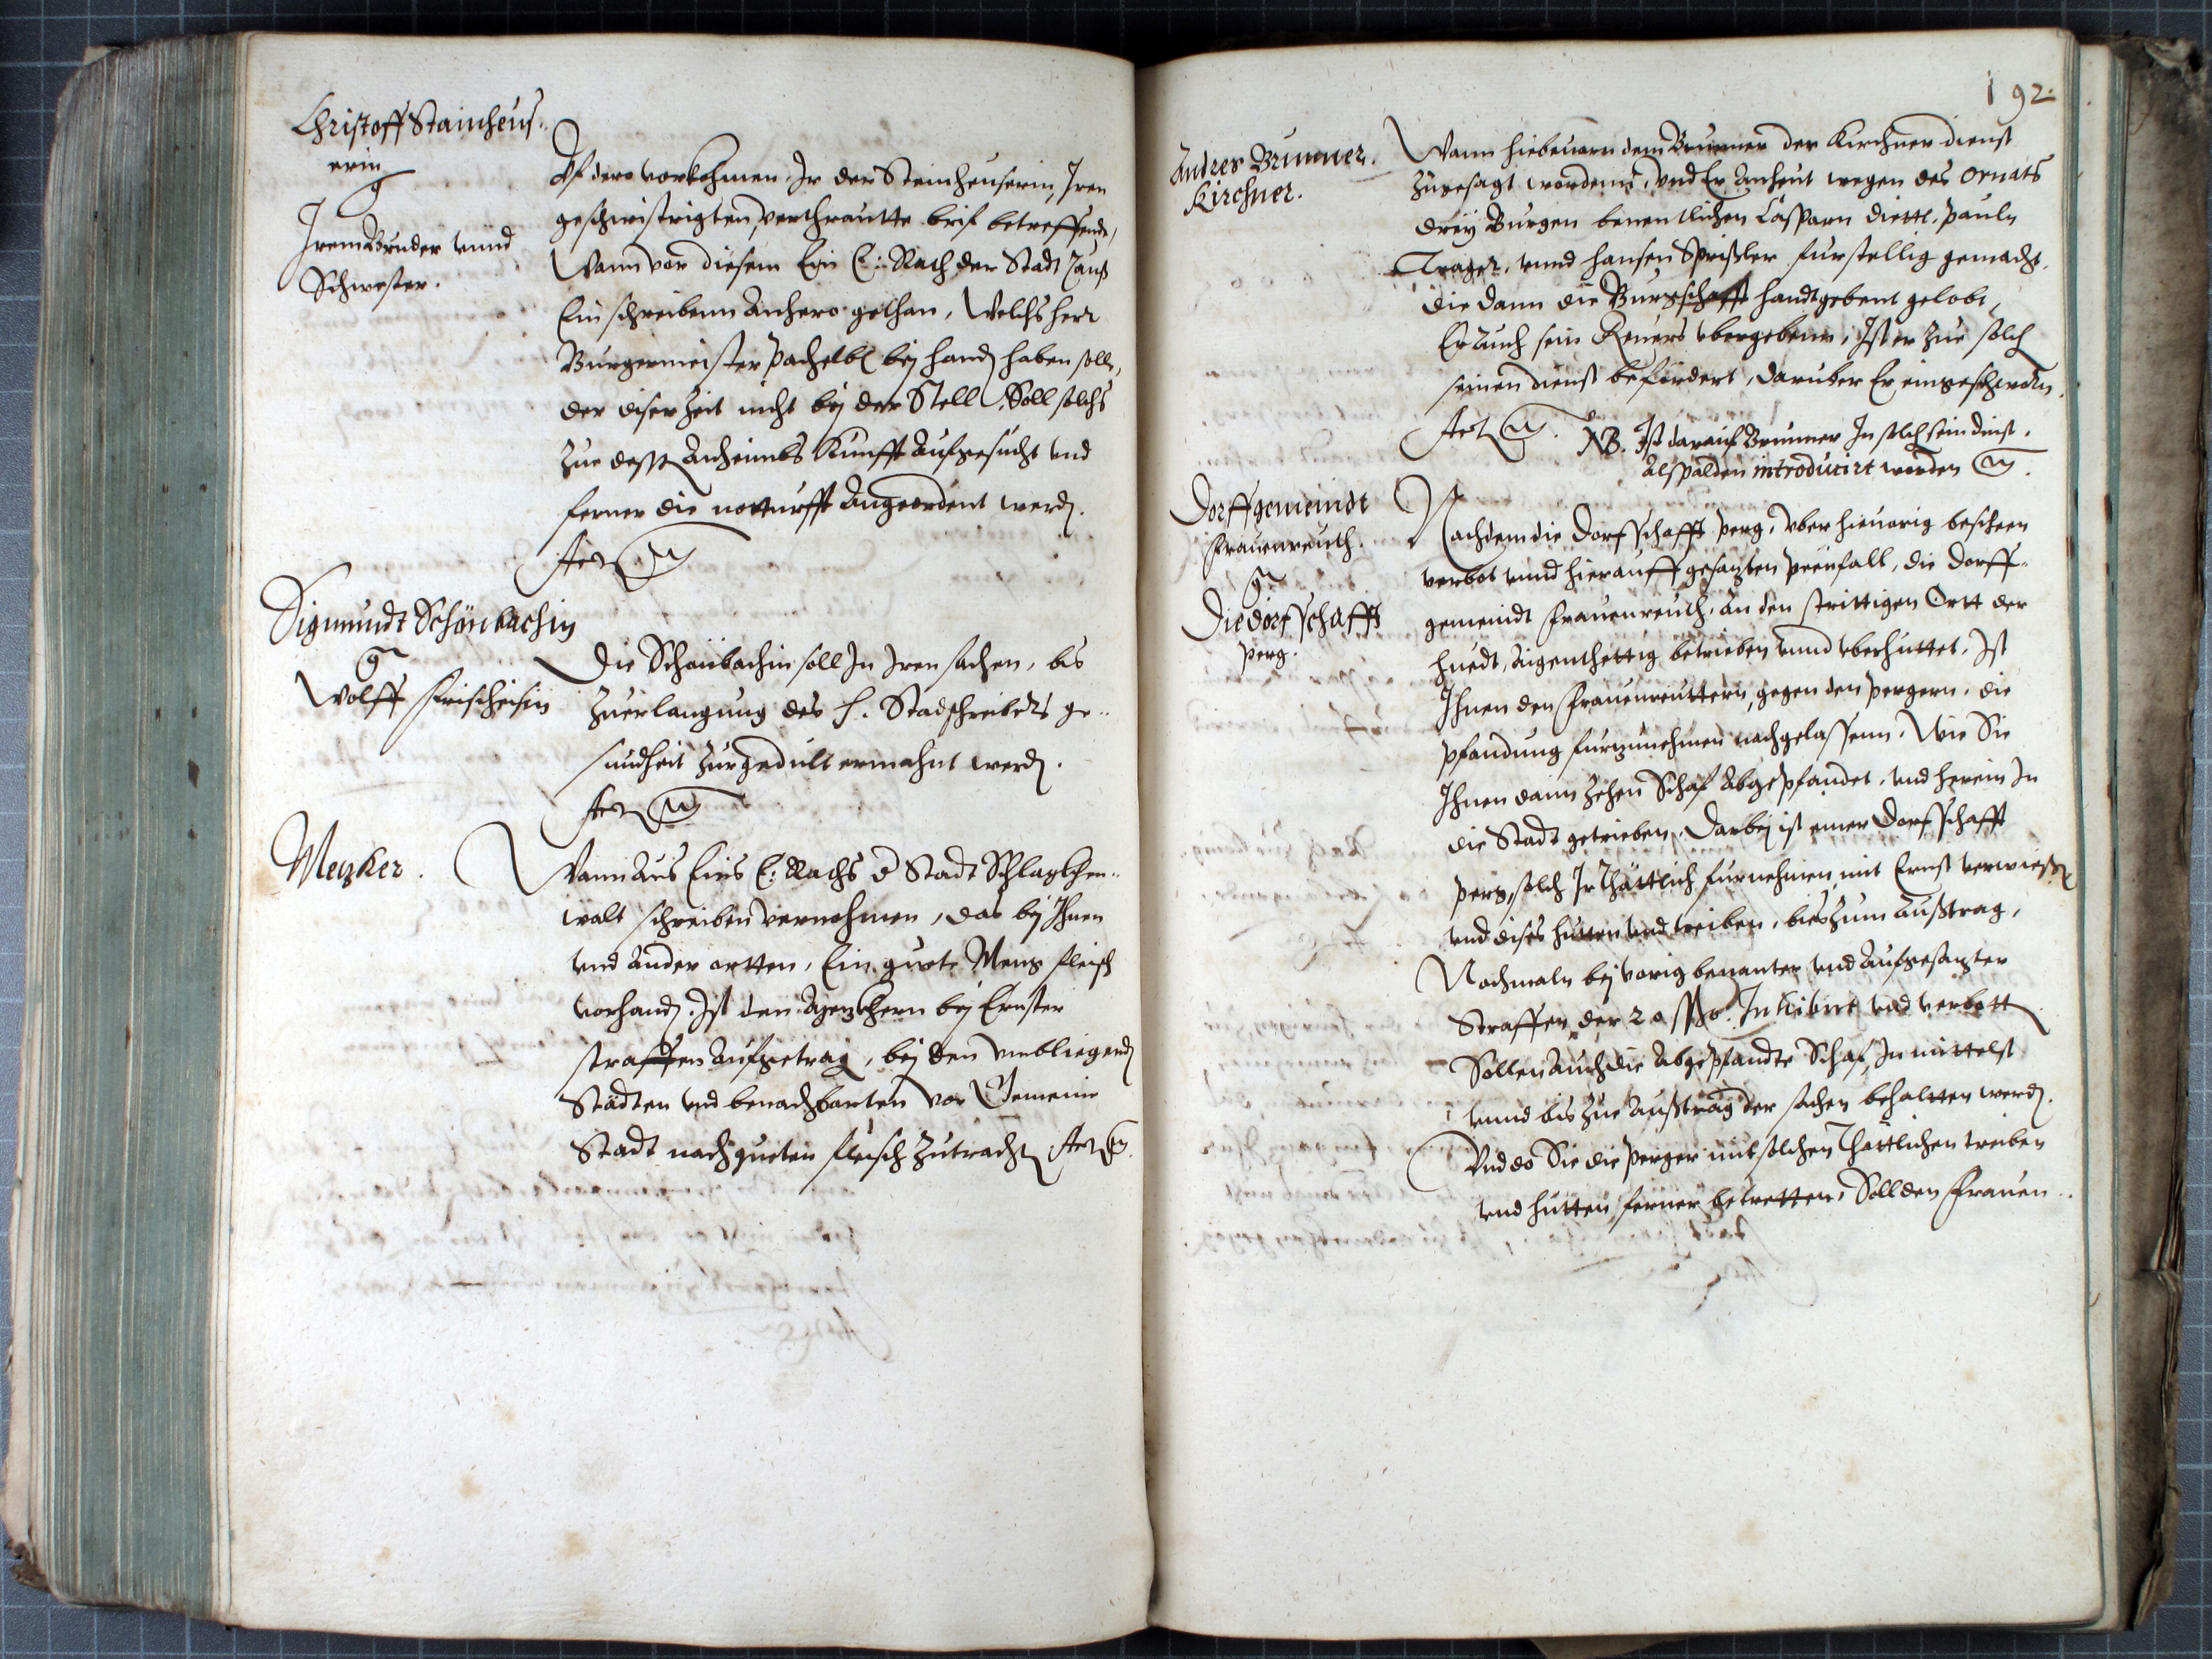 Christoff Stainheus-
erin
g
Irem Bruder vnnd
Schwester.
Vf dero vorkohmen, Ir der Stemheuserin, Iren
geschwistrigten, verthrautte brif betreffende,
Wann vor diesem Ein E: Rath der Stadt
Ein schreibenn Anhero gethan, Welchs herr
Burgermeister Pachelbl bej handen haben solle,
der diser Zeit nicht bej der Stell, Soll solchs
Zue dessen Anheimbs Kunfft Aufgesucht vnd
ferner die notturfft Angeordent werden.
Act
Sigmundt Schönbachin
g
Wolff Frischeisin
Die Schönbachin soll In Iren sachen, bis
Zuerlangung des H. Stadschreibers ge-
sundheit Zur gedult ermahnt werden.
Act
Metzker.
Wann Aus Eins E: Rachs d Stadt Schlagkhen-
walt schreiben vernohmen, das bej Ihnen
vnd Ander ortten, Ein guete Meng fleisch
vorhanden. Ist den Metzkhern bej Ernster
straffen Aufgetrag, bej den vmbliegenden
Städten vnd benachbarten vor Gemeine
Stadt nach gueten fleisch Zutrachten Act
192.
Andres Brunner.
Kirchner.
Wann hiebeuorn dem Brunner der Kirchner dienst
Zugesagt wordenn, vnd Er Anheut wegen des Ornats
dreÿ Burgen benentlichen Casparn Diettl, Pauln
Trager, vnnd Hansen Sprißler furstellig gemacht,
die dann die Burgschafft handtgebent gelobt,
Er Auch sein Reuers vbergebenn, Ist er Zue solch
seinen dienst befürdert, daruber Er eingeschworn.
Act
NB. Ist darauf Brunner In solch sein dinst,
Alspalden introducirt worden
Dorffgemeindt
Frauenreuth.
g
Die dorfschafft
Perg.
Nachdem die Dorfschafft Perg, vber hieuorig beschehen
verbot vnnd hierauff gesazten Peenfall, die Dorff-
gemeindt Frauenreuth, An den strittigen Ortt der
huedt, Aigenthettig betrieben vnnd vberhuttet, Ist
Ihnen den Frauenreuttern, gegen den Pergern, die
Pfandung furzunehmen nachgelassenn. Wie Sie
Ihnen dann Zehen Schaf Abgepfandet, vnd herein In
die Stadt getrieben, Darbej ist einer Dorfschafft
Perg, solch Ir Thättlich furnehmen mit Ernst verwießen
vnd dises hutten vnd treiben, bis Zum Außtrag,
Nochmaln bej vorig benanter vnd Aufgesazter
Straffen der 20 ßo. Inhibirt vnd verbott
Sollen Auch die Abgepfandte Schaf, In mittelst
vnnd bis Zue Außtrag der sachen behaltten werden.
Vnd do Sie die Perger mit solchen Thättlichen treiben
vnd hutten, ferner betretten, Soll den Frauen-